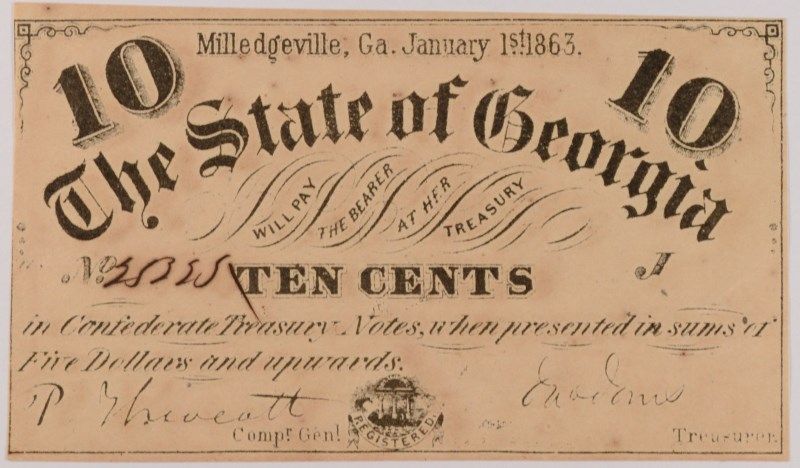 Milledgeville, Ga. January 1st 1863.
10 10
The State of Georgia
WILL PAY THE BEARER AT HER TREASURY
No. TEN CENTS J
in Confederate Treasury Notes, when presented in sums of
Five Dollars and upwards.
P Thweatt Jno Jones
Compr. Genl. REGISTERED Treasurer.